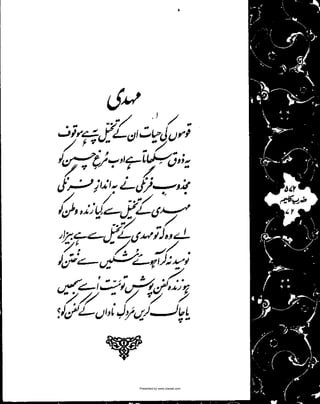 مہدی
قوموں کی حیات ان کے تخیل پہ ہے موقوف
یہ ذوق سکھاتا ہے ادب مرغِ چمن کو
مجذوبِ فرنگی نے بہ اندازِ فرنگی
مہدی کے تخیل سے کیا زندہ وطن کو
اے وہ کہ تو مہدی کے تخیل سے ہے بیزار
نومید نہ کر آہوئے مشکیں سے ختن کو
ہو زندہ کفن پوش تو میت اسے سمجھیں
یا چاک کریں مردکِ ناداں کے کفن کو؟
ضربِ کلیم